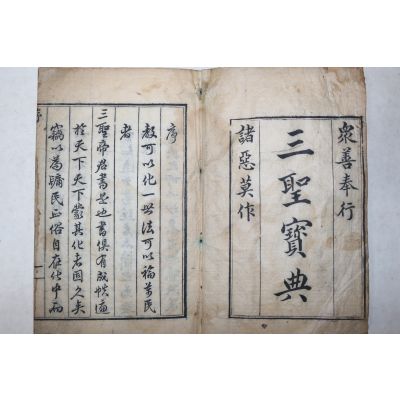 衆善奉行
三聖寶典
諸惡莫作
序
教可以化一世法可以福萬民
者
三聖帝君書是也書俱有成帙遍
於天下天下蒙其化者固久矣
竊以為牖民正俗自在其中而